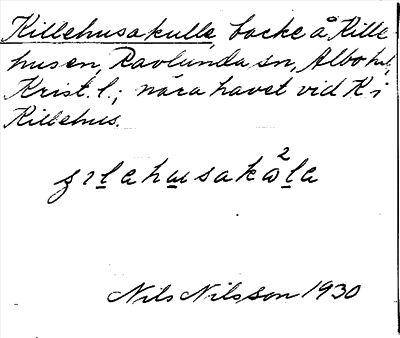 Killehusakulle, backe å Kille-
husen, Ravlunda sn, Albo hd,
Krist. l.; nära havet vid K i
Killehus.
Nils Nilsson 1930